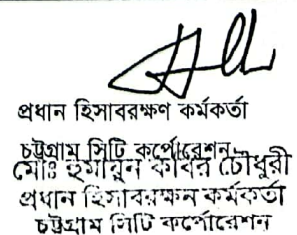 প্রধান হিসাবরক্ষণ কর্মকর্তা
চট্টগ্রাম সিটি কর্পোরেশন
মোঃ হুমায়ুন কবির চৌধুরী
প্রধান হিসাবরক্ষন কর্মকর্তা
চট্টগ্রাম সিটি কর্পোরেশন